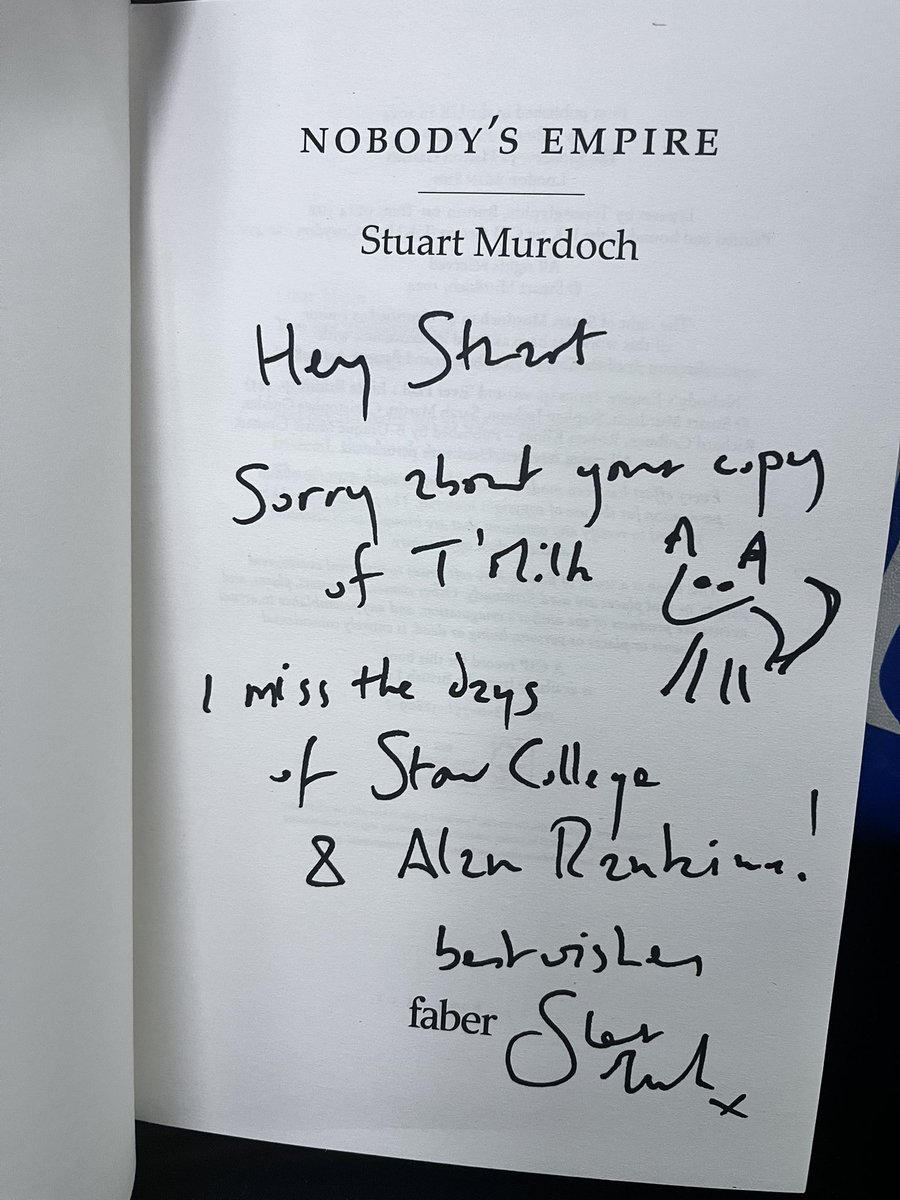 NOBODY'S EMPIRE
Stuart Murdoch
Hey Stuart
Sorry about your copy
of T'Milk
I miss the days
of Stow College
& Alan Rankine!
best wishes
faber
x